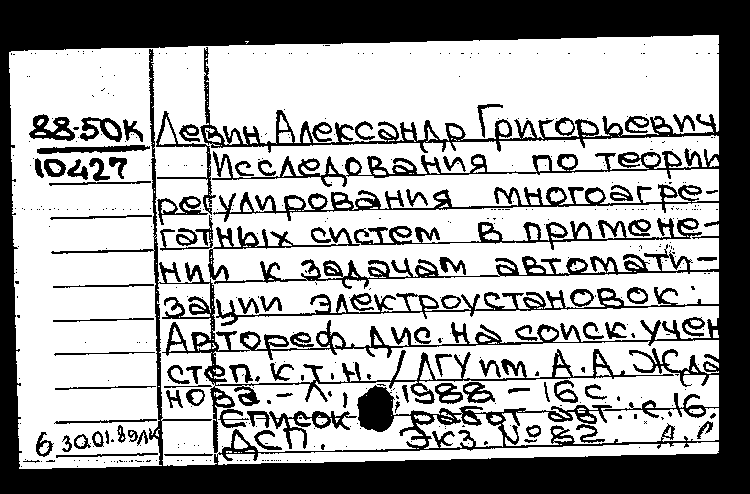 88-50К
10427
Левин, Александр Григорьевич
Исследования по теории
регулирования многоагре-
гатных систем в примене-
нии к задачам автомати-
зации электроустановок:
Автореф. дис. на соиск. учен
степ. к.т.н. / ЛГУ им. А.А. Жда
нова. - Л., 1988 - 16 с.
Список работ авт.: с. 16.
ДСП. Экз. № 82.
6 30.01.89